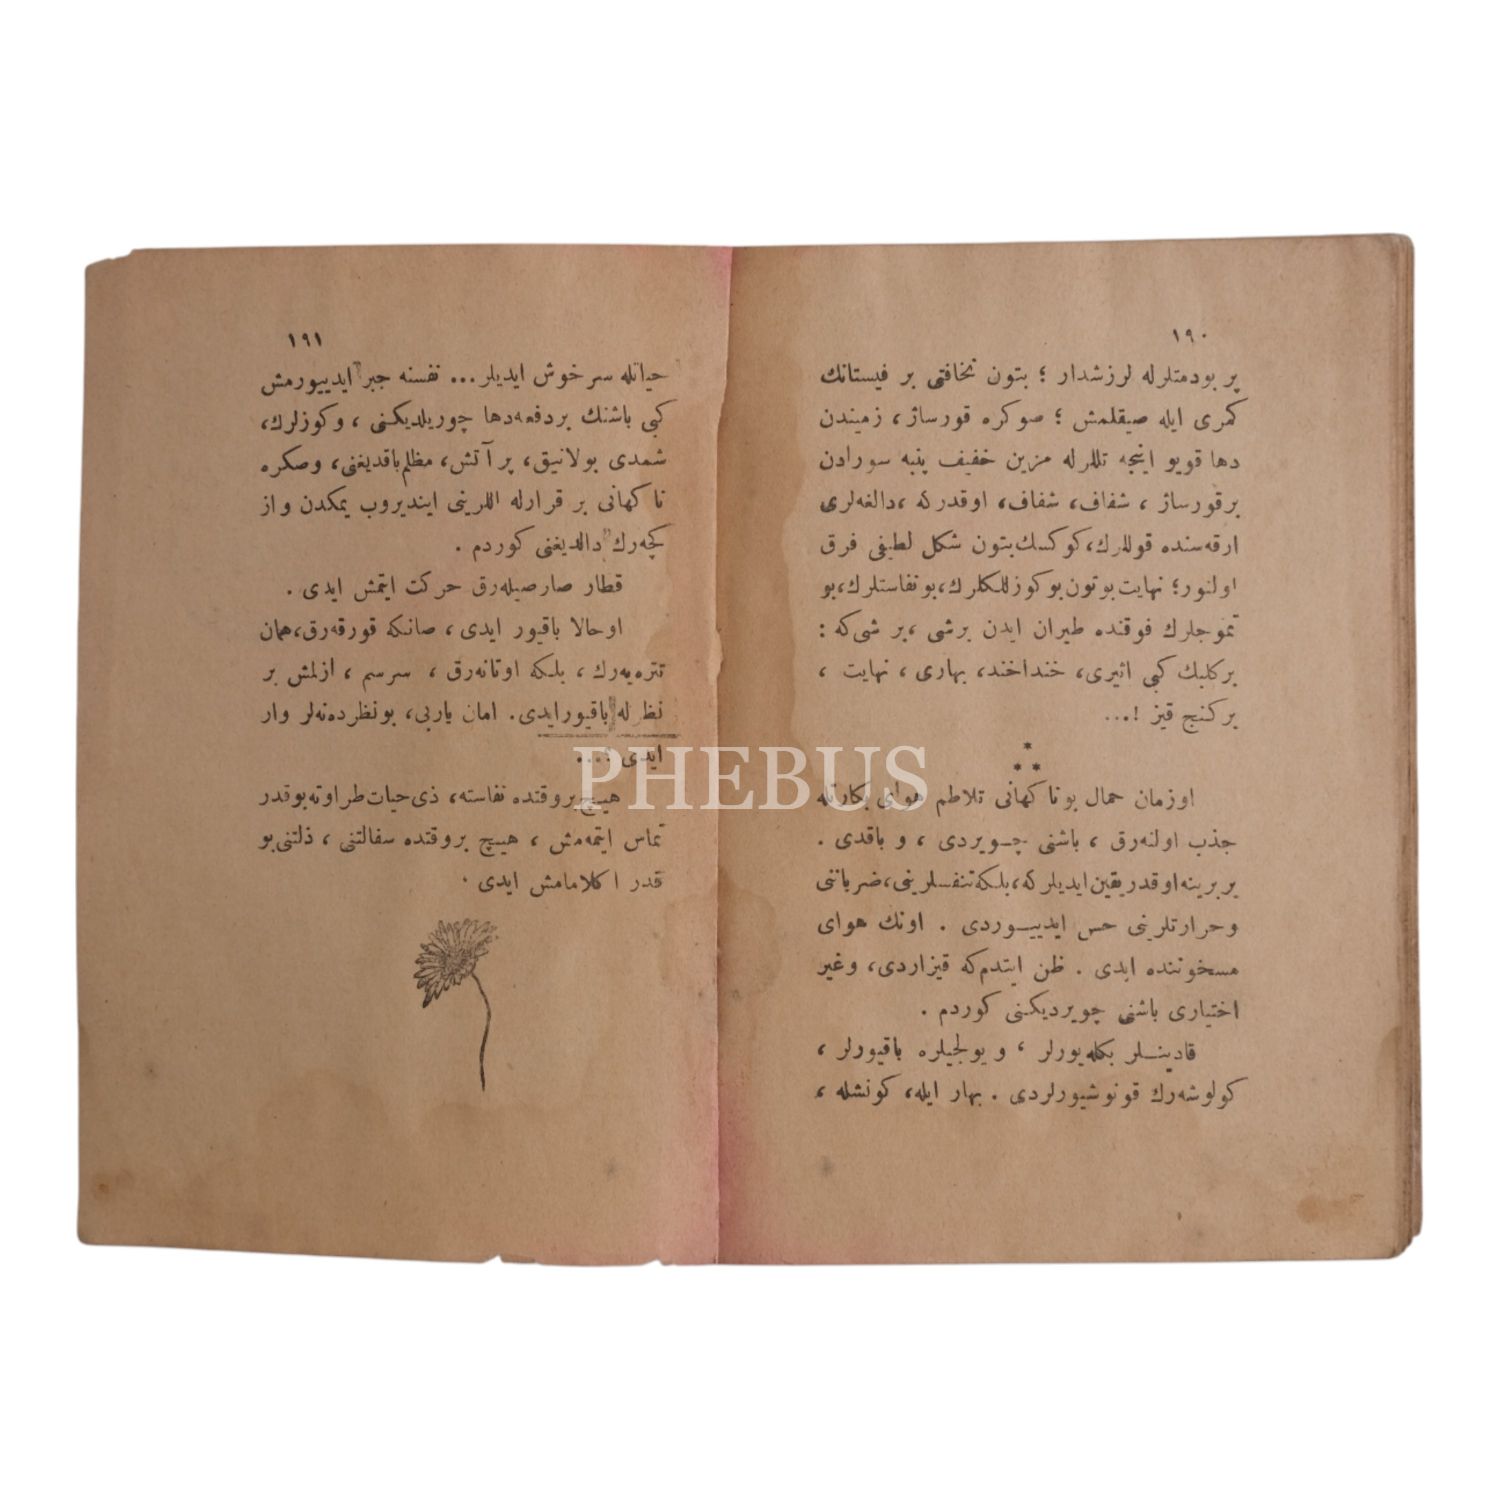 ١٩٠
پر بودمتلرله لرزشدار ؛ بتون نخافتی بر فیستانك
كمری ایله صیقلمش ؛ صوكره قورساژ ، زمیندن
دها قویو اینجه تللرله مزین خفیف پنبه سورادن
برقورساژ ، شفاف، شفاف، اوقدركه ،دالغه‌لری
ارقه‌سنده قوللرك،كوكسك‌بتون شكل لطیفی فرق
اولنور؛ نهایت‌بوتون‌بوكوزللكلرك،بونفاستلرك،بو
تموجلرك فوقنده طیران ایدن برشی ،بر شی‌كه :
بركلبك كبی اثیری، خنداخند، بهاری ، نهایت ،
بركنج قیز !...
* * *
اوزمان حمال بوناكهانی تلاطم هوای بكارتله
جذب اولنه‌رق ، باشنی چویردی ، و باقدی .
بربرینه‌اوقدریقین‌ایدیلركه،بلكه‌تنفسلرینی،ضرباتنی
وحرارتلرینی حس ایدییوردی . اونك هوای
مسخوننده ایدی . ظن ایتدم‌كه قیزاردی، وغیر
اختیاری باشنی چویردیكنی كوردم .
قادینلر بكله‌یورلر ، و یولجیلره باقیورلر ،
كولوشه‌رك قونوشیورلردی . بهار ایله، كونشله ،
١٩١
حیاتله سرخوش ایدیلر... نفسنه جبر ایدییورمش
كبی باشنك بردفعه‌دها چوریلدیكنی ، وكوزلرك،
شمدی بولانیق، پر آتش، مظلم‌باقدیغنی، وصكره
ناكهانی بر قرارله اللرینی ایندیروب یمكدن واز
كچه‌رك دالدیغنی كوردم .
قطار صارصیله‌رق حركت ایتمش ایدی .
اوحالا باقیور ایدی ، صانكه قورقه‌رق،همان
تتره‌یه‌رك ، بلكه اوتانه‌رق ، سرسم ، ازلمش بر
نظرله باقیورایدی. امان یاربی، بونظرده‌نه‌لر وار
ایدی ؟...
هیچ‌بروقتده نفاسته، ذی‌حیات‌طراوته‌بوقدر
تماس ایتمه‌مش ، هیچ بروقتده سفالتنی ، ذلتنی‌بو
قدر اكلامامش ایدی .
PHEBUS